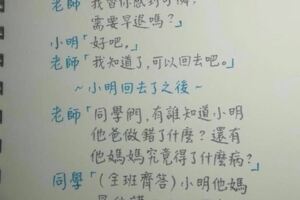 老師「我替你感到可憐，
需要早退嗎？」
小明「好吧。」
老師「我知道了，可以回去吧。」
～小明回去了之後～
老師「同學們，有誰知道小明
他爸做錯了什麼？還有
他媽媽究竟得了什麼病？」
同學「（全班齊答）小明他媽